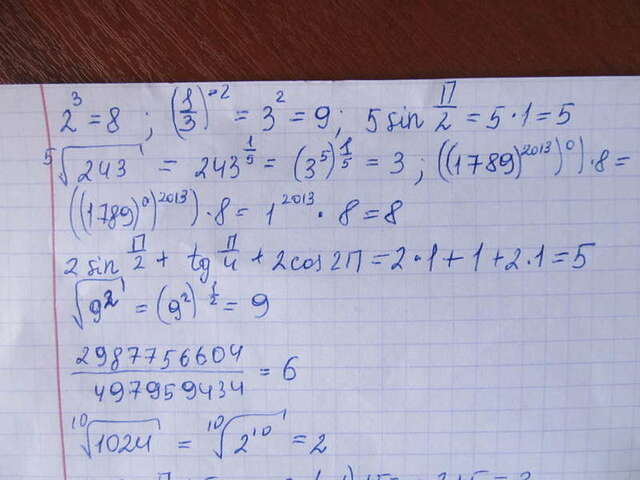 2³ = 8 ; (1/3)⁻² = 3² = 9 ; 5 sin П/2 = 5 · 1 = 5
⁵√243 = 243^(1/5) = (3⁵)^(1/5) = 3 ; ((1789)²⁰¹³)⁰) · 8 =
((1789)⁰)²⁰¹³) · 8 = 1²⁰¹³ · 8 = 8
2 sin П/2 + tg П/4 + 2cos 2П = 2 · 1 + 1 + 2 · 1 = 5
√9² = (9²)^(1/2) = 9
2987756604/497959434 = 6
¹⁰√1024 = ¹⁰√2¹⁰ = 2